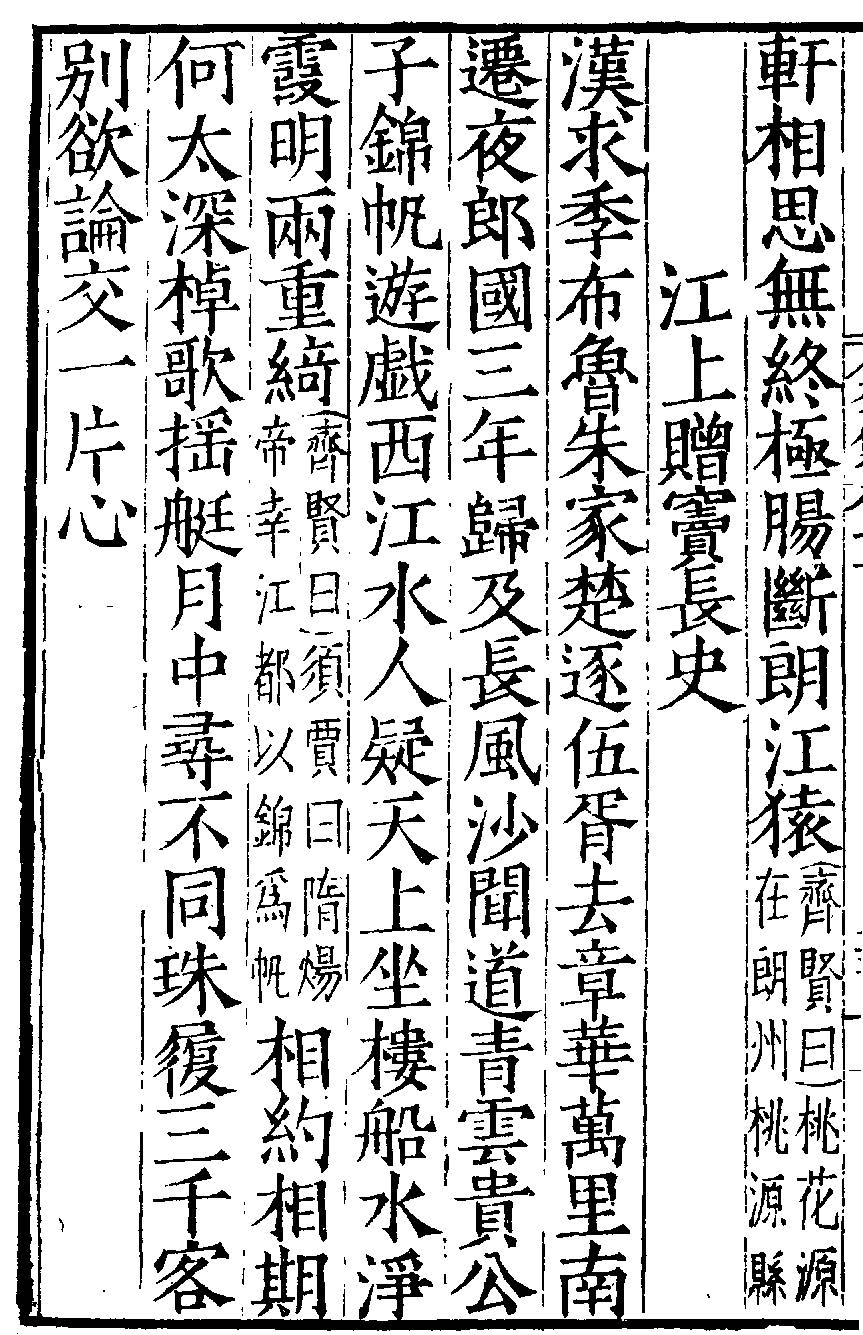 軒相思無終極腸斷朗江猿(齊賢曰)桃花源在朗州桃源縣
江上贈竇長史
漢求季布魯朱家楚逐伍胥去章華萬里南
遷夜郎國三年歸及長風沙聞道青雲貴公
子錦帆遊戯西江水人疑天上坐樓船水淨
霞明兩重綺(齊賢曰)須賈曰隋煬帝幸江都以錦爲帆相約相期
何太深棹歌揺艇月中尋不同珠履三千客
別欲論交一片心